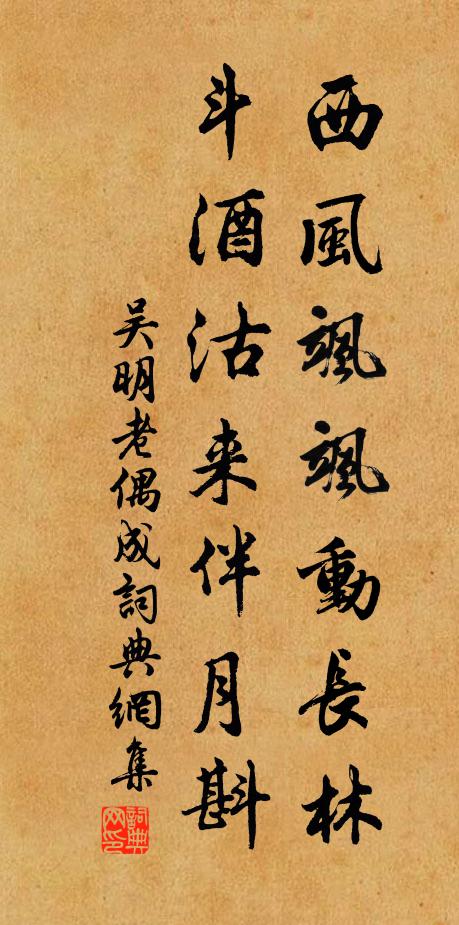 西風颯颯動長林
斗酒沽来伴月斟
吴明老偶成詞典網集
詞典
网印